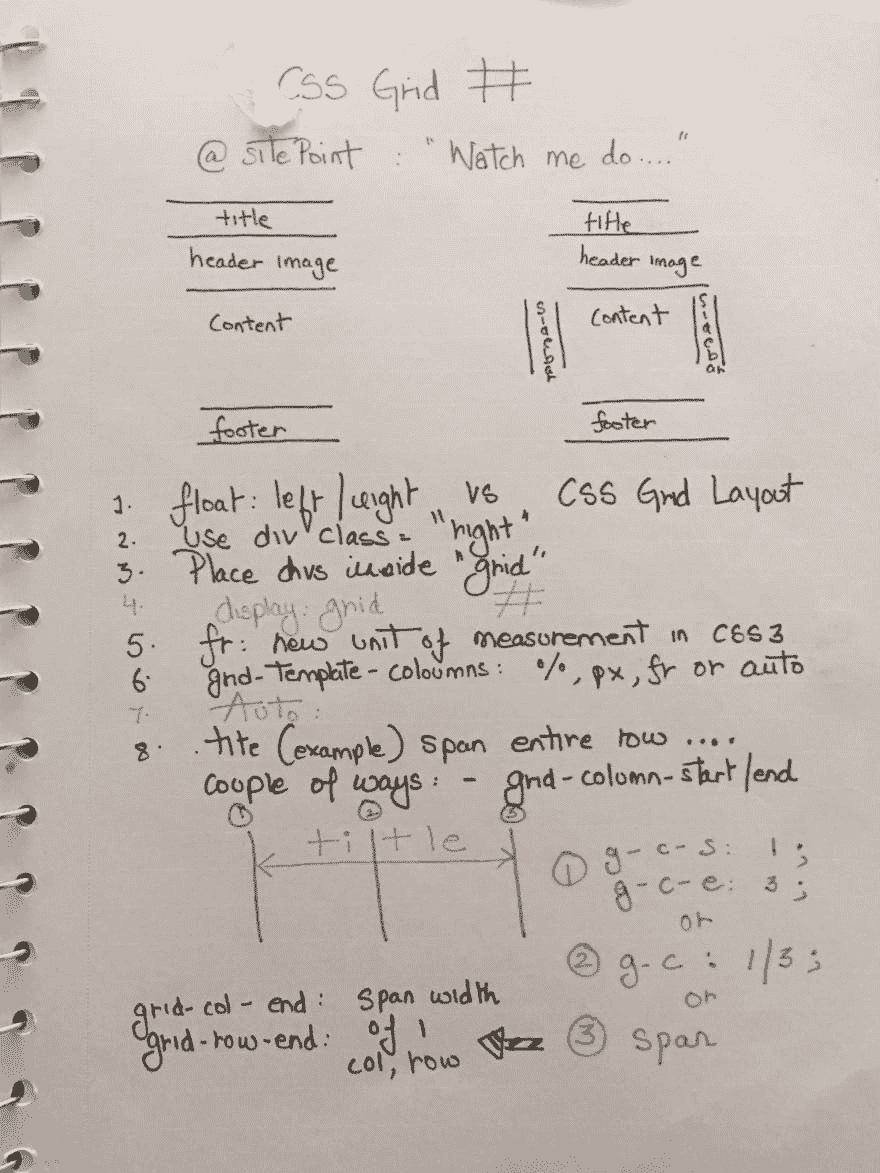 CSS Grid #
@ SitePoint : "Watch me do...."
title
header image
Content
footer
title
header image
Sidebar
Content
Sidebar
footer
1. float: left/right vs CSS Grid Layout
2. Use div class = "right"
3. Place divs inside "grid"
4. display: grid #
5. fr: new unit of measurement in CSS3
6. grid-Template-coloumns: %, px, fr or auto
7. Auto:
8. title (example) span entire row ....
couple of ways: - grid-column-start/end
1 2 3
title
1 g-c-s: 1;
g-c-e: 3;
or
2 g-c: 1/3;
or
3 span
grid-col-end: span width
grid-row-end: of 1
col, row